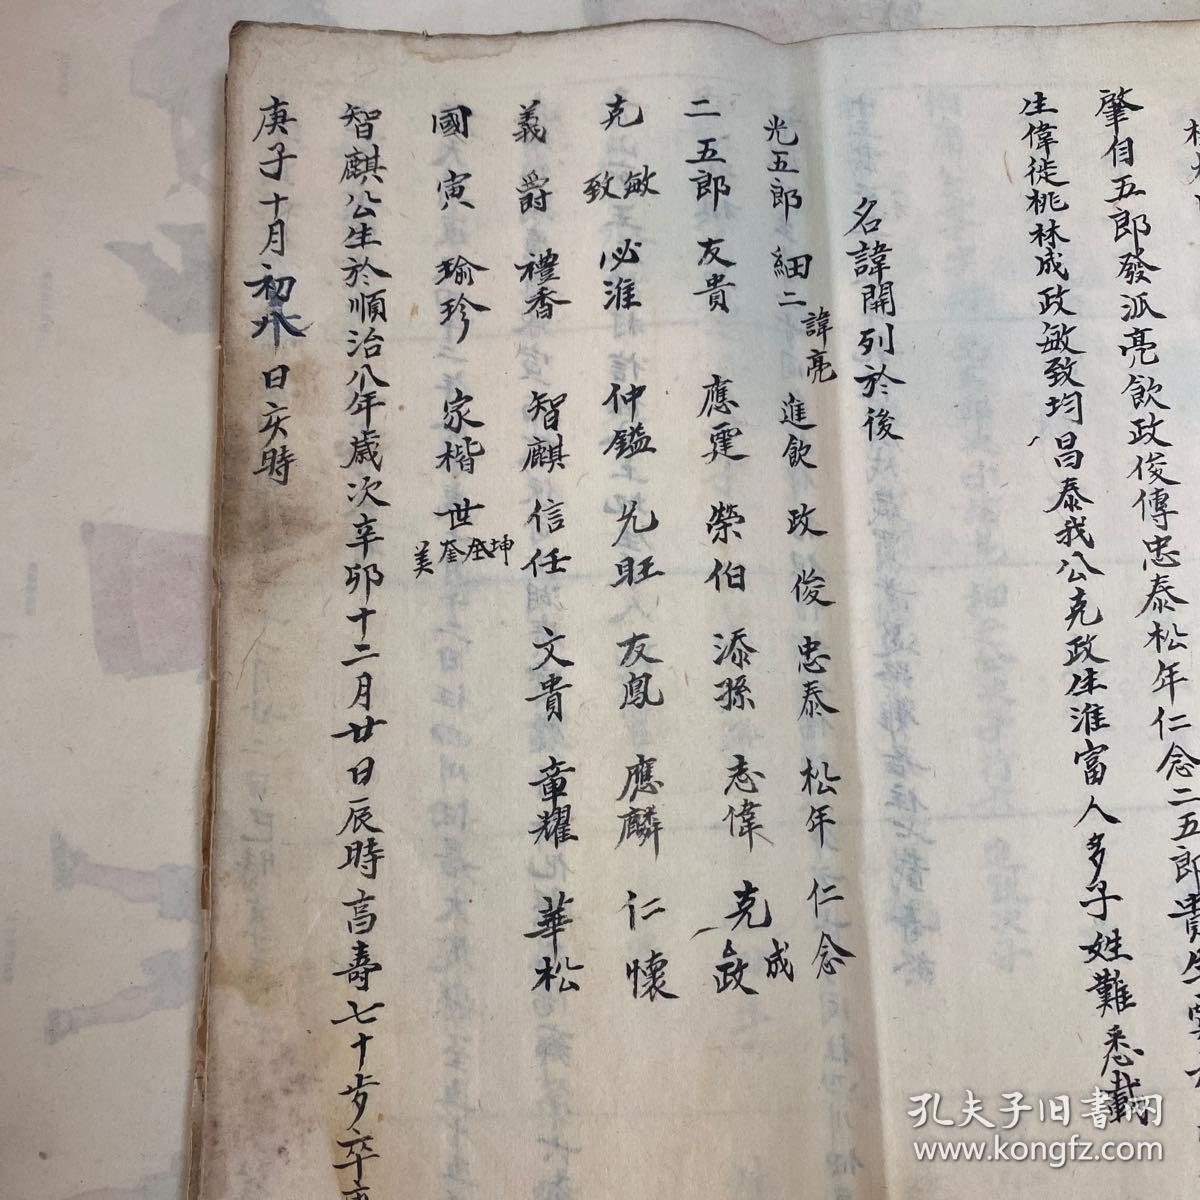 肇自五郎發派亮飲政俊傳忠泰松年仁念二五郎貴生
生偉徙桃林成政敏致均昌泰我公克政生淮富人多子姓難悉載
名諱開列於後
光五郎 細二 諱亮 進飲 政 俊 忠泰 松年 仁念
二五郎 友貴 應霆 榮伯 添孫 志偉 克政 成
克敏 致 必淮 仲鎰 允旺 友鳳 應麟 仁懷
義爵 禮香 智麒 信任 文貴 章耀 華松
國寅 瑜珍 家楷 世坤 奎 美
智麒公生於順治八年歲次辛卯十二月廿日辰時高壽七十歲卒
庚子十月初 日亥時
孔夫子旧書网
www.kongfz.com